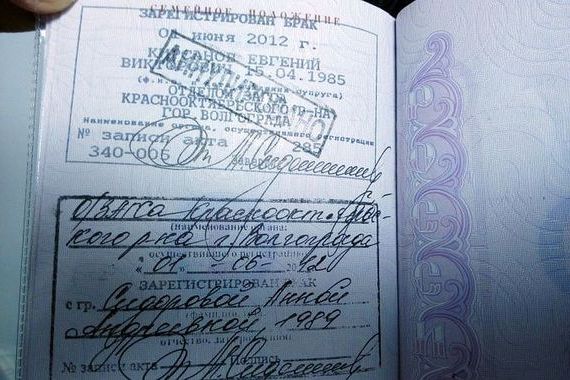 СЕМЕЙНОЕ ПОЛОЖЕНИЕ
ЗАРЕГИСТРИРОВАН БРАК
июня 2012 г.
ЕВГЕНИЙ
15.04.1985
супруга)
КРАСНООКТЯБРЬСКОГО Р-НА
ГОР. ВОЛГОГРАДА
Наименование органа, осуществившего регистрацию
№ записи акта 285
340-006
ОЗАГСа Краснооктябрьс-
кого р-на г. Волгограда
(наименование органа,
осуществившего регистрацию)
ЗАРЕГИСТРИРОВАН БРАК
с гр. Сидоровой Анной
Андреевной, 1989
отчество, дата рождения
№ записи акта Подпись